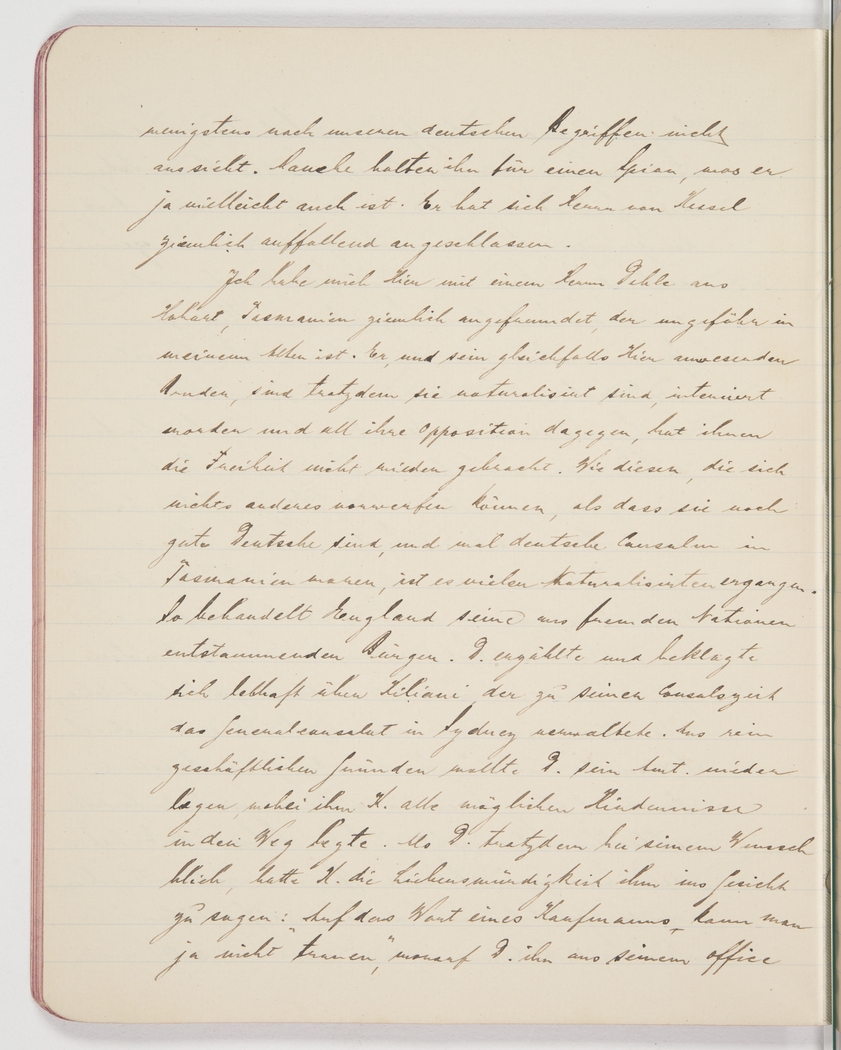 wenigstens nach unseren deutschen Begriffen nicht
aussieht. Manche halten ihn für einen Spion, was er
ja vielleicht auch ist. Er hat sich Herrn von Hessel
ziemlich auffallend angeschlossen.
Ich habe mich hier mit einem Herrn Dehle aus
Hobart, Tasmanien ziemlich angefreundet, der ungefähr in
meinem Alter ist. Er, und sein gleichfalls hier anwesender
Bruder, sind trotzdem sie naturalisirt sind, interniert
worden und all ihre Opposition dagegen, hat ihnen
die Freiheit nicht wieder gebracht. Wie diesen, die sich
nichts anderes vorwerfen können, als dass sie noch
gute Deutsche sind, und mal deutsche Consulen in
Tasmanien waren, ist es vielen Naturalisirten ergangen.
So behandelt England seine aus fremden Nationen
entstammenden Bürger. D. erzählte und beklagte
sich lebhaft über Kiliani der zu seiner Consulszeit
das Generalconsulat in Sydney verwaltete. Aus rein
geschäftlichen Gründen wollte D. sein Amt. nieder
legen, wobei ihm K. alle möglichen Hindernisse
in den Weg legte. Als D. trotzdem bei seinem Wunsch
blieb, hatte K. die Liebenswürdigkeit ihm ins Gesicht
zu sagen: Auf das Wort eines Kaufmanns, kann man
ja nicht "trauen", worauf D. ihn aus seinem office